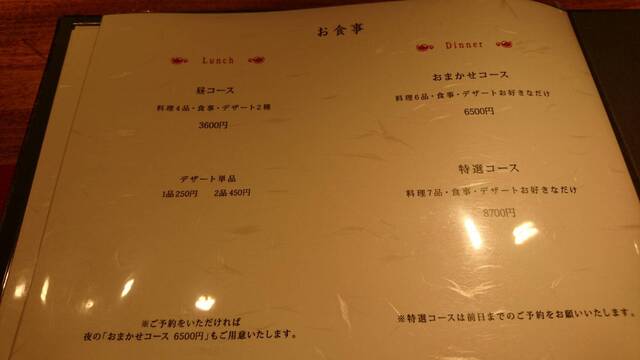 お食事
Lunch
昼コース
料理4品・食事・デザート2種
3600円
デザート単品
1品250円 2品450円
※ご予約をいただければ
夜の「おまかせコース 6500円」もご用意いたします。
Dinner
おまかせコース
料理6品・食事・デザートお好きなだけ
6500円
特選コース
料理7品・食事・デザートお好きなだけ
8700円
※特選コースは前日までのご予約をお願いいたします。